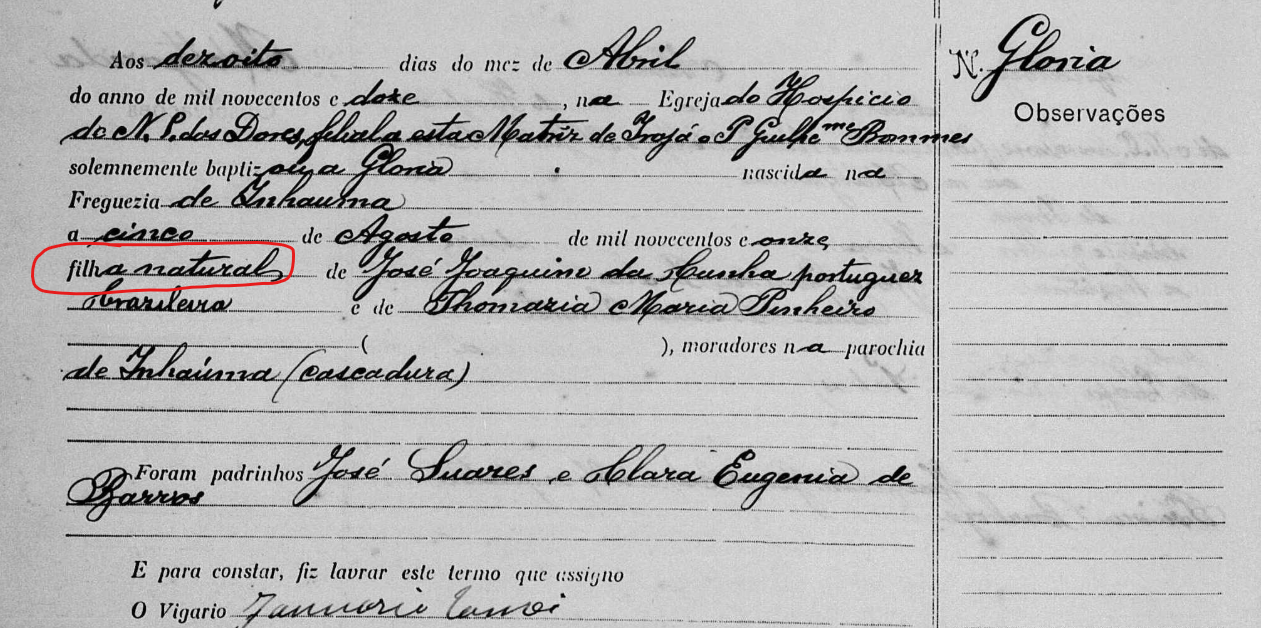 Aos dezoito dias do mez de Abril
do anno de mil novecentos e doze, na Egreja do Hospicio
de N. S. das Dores, filial a esta Matriz de Irajá o P. Guilhe.me
solemnemente baptizou a Gloria nascida na
Freguezia de Inhauma
a cinco de Agosto de mil novecentos e onze,
filha natural de José Joaquim da Cunha portuguez
brazileira e de Thomazia Maria Pinheiro
( ), moradores na parochia
de Inhaúma (Cascadura)
Foram padrinhos José Soares e Clara Eugenia de
Barros
E para constar, fiz lavrar este termo que assigno
O Vigario Januario
N. Gloria
Observações